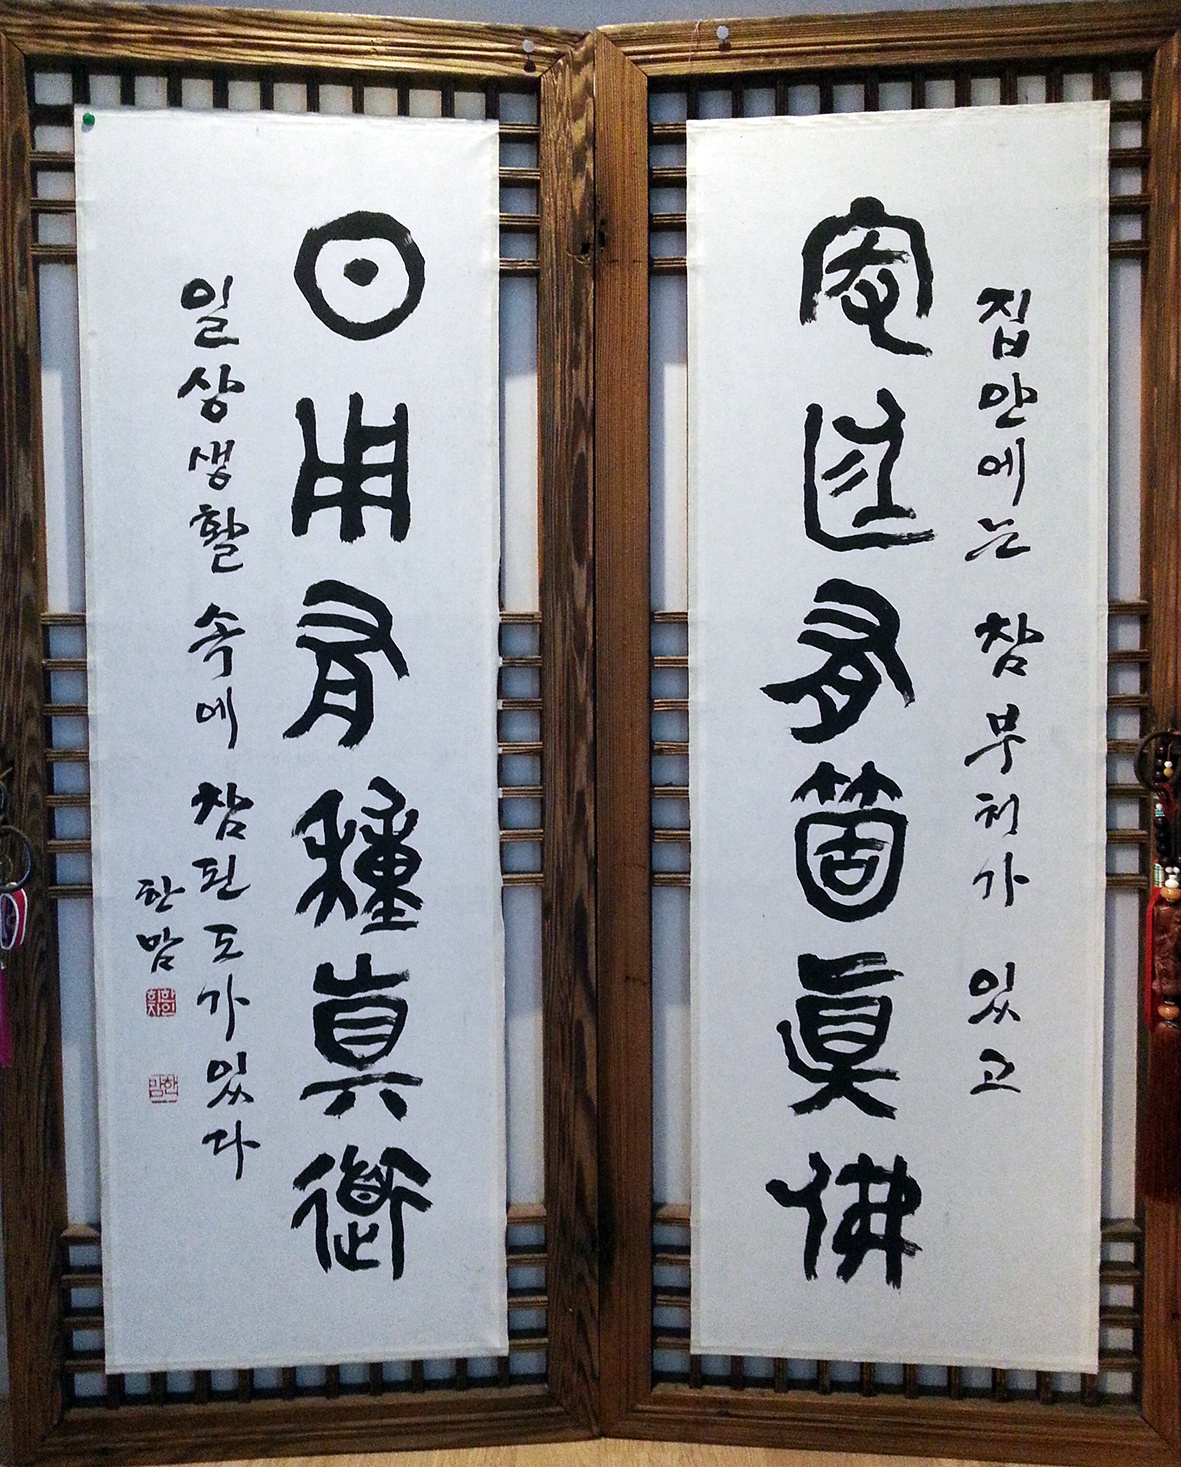 집안에는 참부처가 있고
家庭有箇眞佛
日用有種眞道
일상생활 속에 참된 도가 있다
한맘